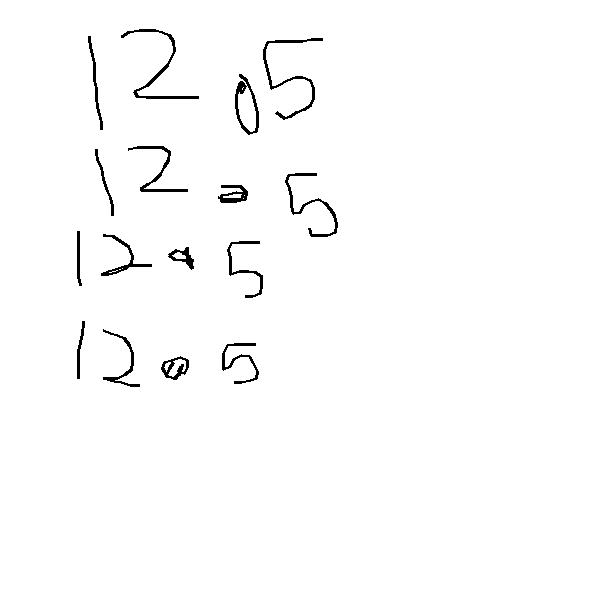 12.5
12.5
12.5
12.5